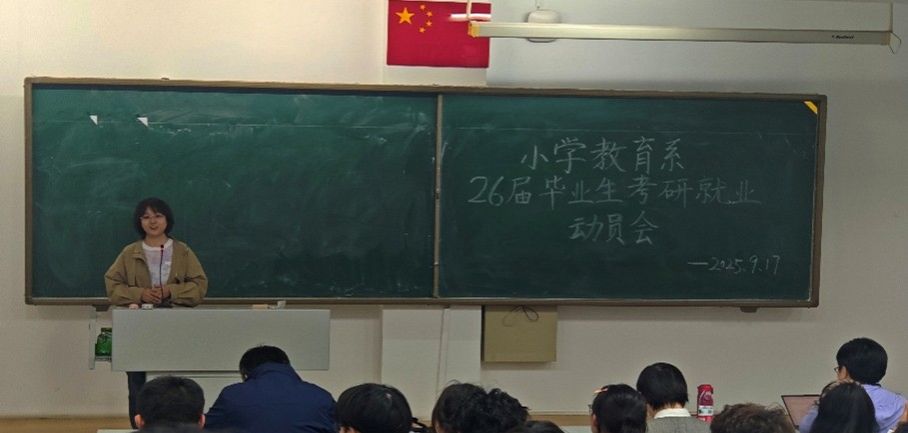 小学教育系
26届毕业生考研就业
动员会
—2025.9.17